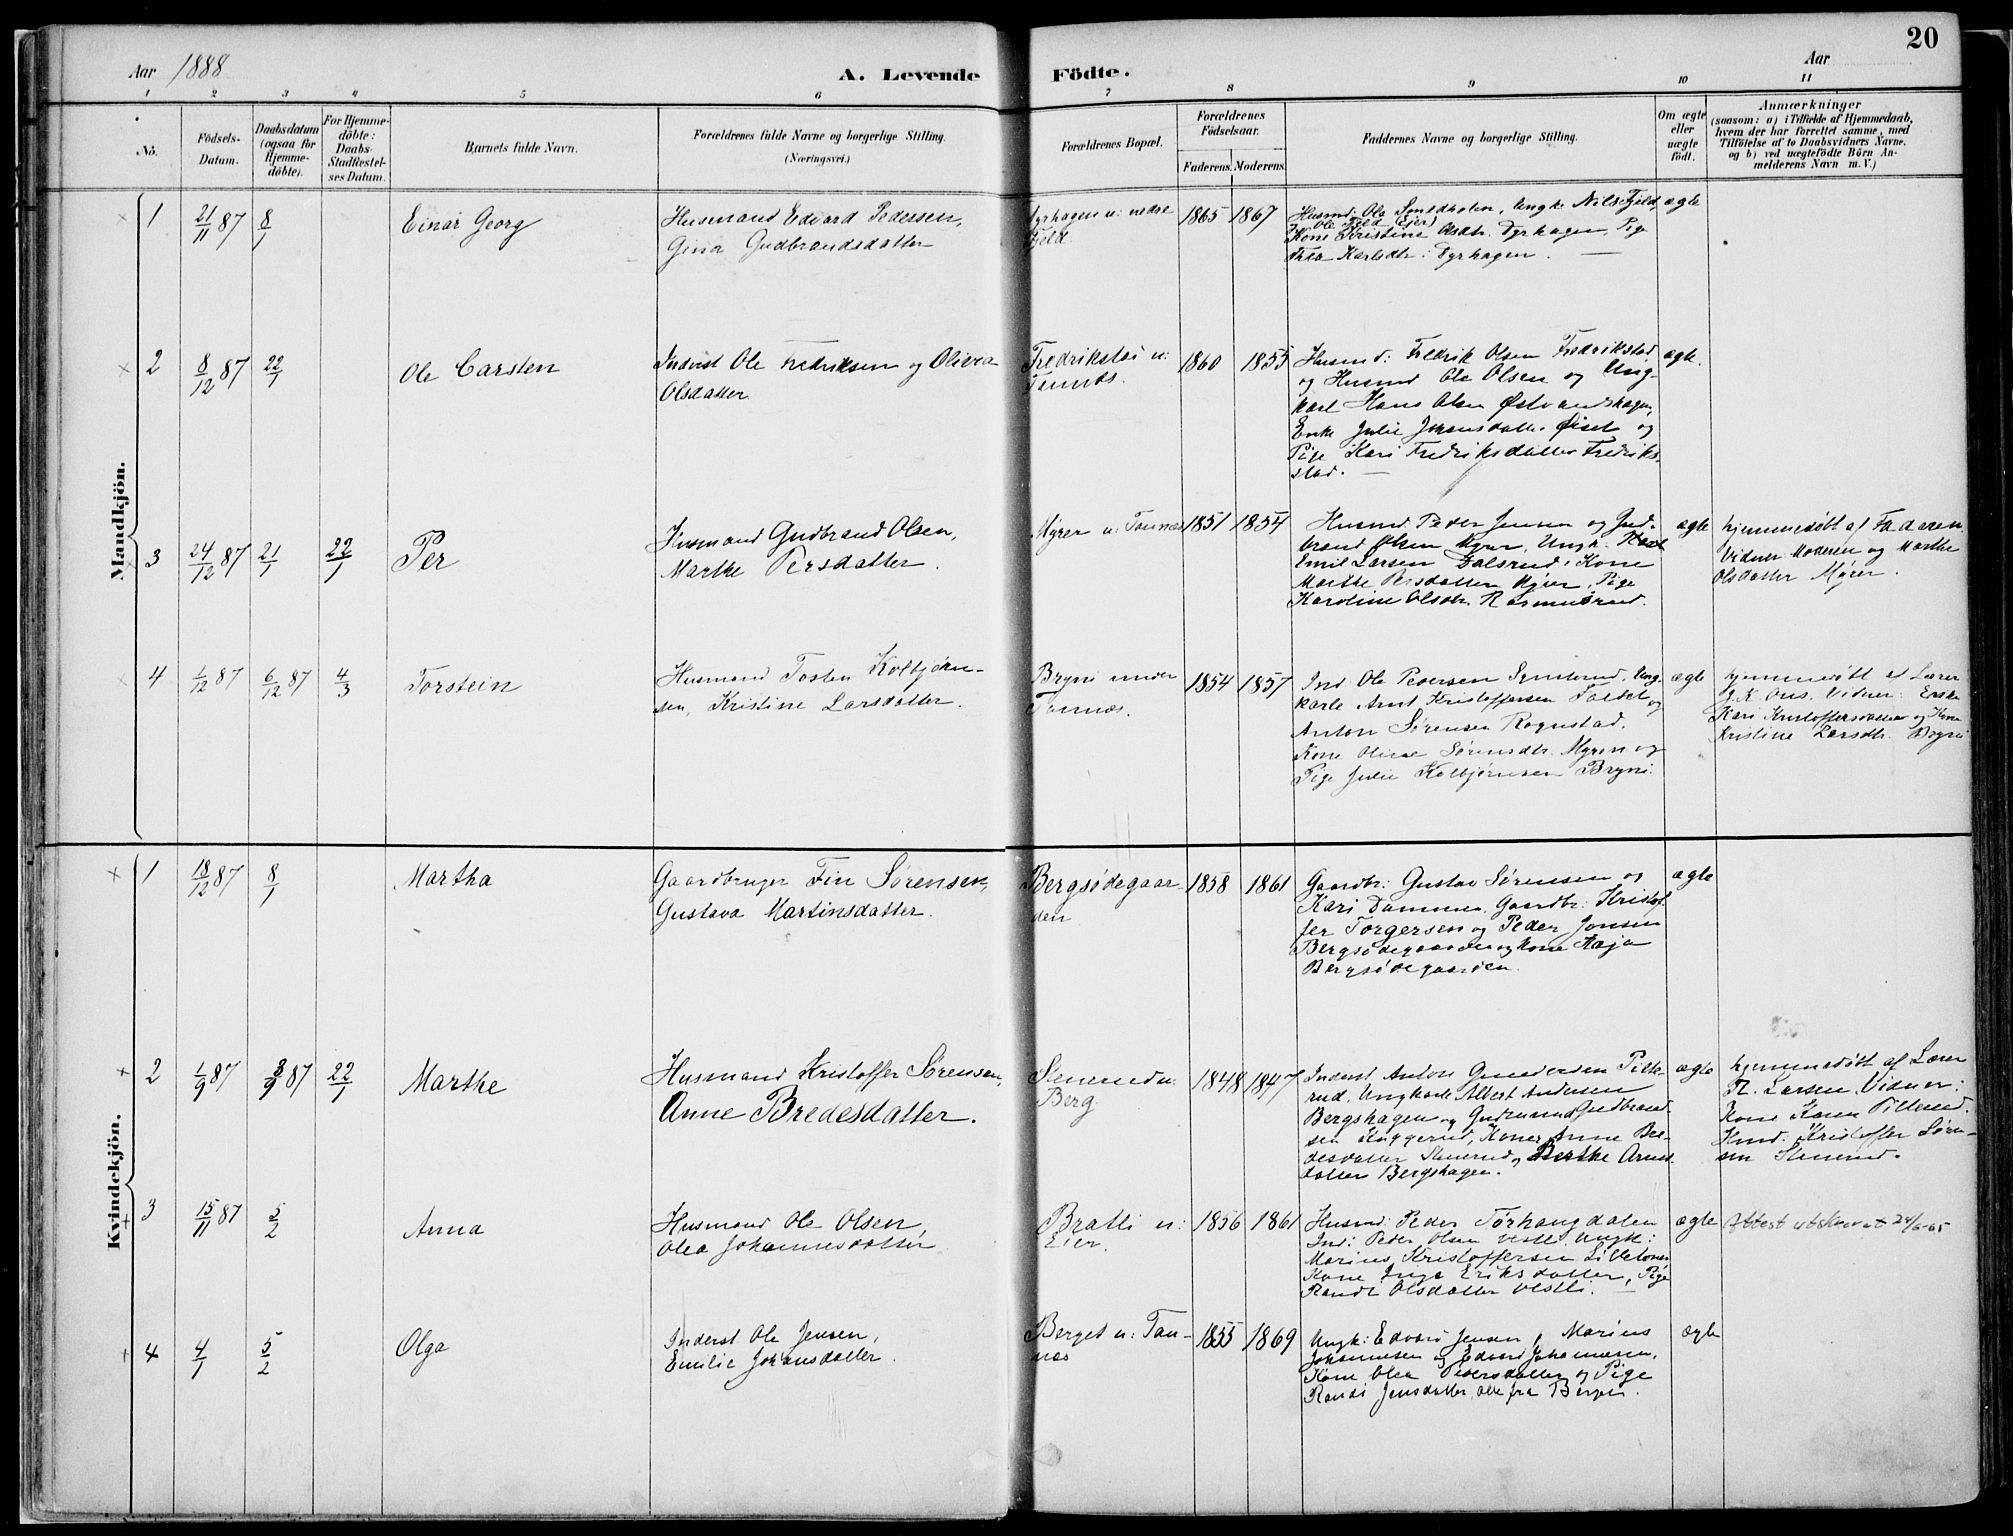 20
Aar 1888
A. Levende Födte.
Aar
1 2 3 4 5 6 7 8 9 10 11
No.
Födsels-Datum.
Daabsdatum (ogsaa for Hjemme-döbte).
For Hjemme-döbte: Daabs-Stadfæstel-ses Datum.
Barnets fulde Navn.
Forældrenes fulde Navne og borgerlige Stilling.
(Næringsvei.)
Forældrenes Bopæl.
Forældrenes Födselsaar.
Faderens. Moderens.
Faddernes Navne og borgerlige Stilling.
Om ægte eller uægte födt.
Anmærkninger
(saasom: a) i Tilfælde af Hjemmedaab,
hvem der har forrettet samme, med
Tilföielse af to Daabsvidners Navne,
og b) ved uægtefödte Börn An-
melderens Navn m. V.)
Mandkjön.
1 21/11 87 8/1 Einar Georg
Husmand Edvard Pedersen,
Gina Gudbrandsdatter
Dyrhagen u: nedre
Fjeld
1865 1867
Husmd: Ole Smedholen, Ungk Nils Fjeld,
Ole Fjeld (Eier)
Kone Kristine Olsdtr. Dyrhagen, Pige
Thea Karlsdtr: Dyrhagen.
ægte
2 8/12 87 22/1 Ole Carsten
Inderst Ole Fredriksen og Olivia
Olsdatter
Fredrikstad u:
Tonnæs.
1860 1855
Husmd: Fredrik Olsen Fredrikstad
og Husmd Ole Olsen og Ung-
karl Hans Olsen Østvandshagen,
Enke Julie Johansdatter Øiset og
Pige Kari Fredriksdatter Fredrik-
stad.
ægte.
3 24/12 87 21/1 22/1 Per
Husmand Gudbrand Olsen,
Marthe Persdatter.
Myrer u: Tonnæs
1851 1854
Husmd. Peder Jensen og Gud-
brand Olsen Myrer, Ungk.
Emil Larsen Dalsrud, Kone
Marthe Persdatter Myrer, Pige
Karoline Olsdtr. Rasmusrud.
ægte
hjemmedøbt af Faderen
Vidner Moderen og Marthe
Olsdatter Myrer.
4 1/12 87 6/12 87 4/3 Torstein
Husmand Tosten Kolbjørn-
sen, Kristine Larsdatter.
Bryni under
Tonnæs.
1854 1857
Ind Ole Pedersen Ung-
karle Arnt Kristoffersen Faldet og
Anton Sørensen Rognstad.
Kone Oline Sørensdtr. Myren og
Pige Julie Kolbjørnsen Bryni.
ægte
hjemmedøbt af Lærer
Vidner: Enke
Kari Kristoffersdatter og Kone
Kristine Larsdtr. Bryni
Kvindekjön.
1 18/12 87 8/1 Martha
Gaardbruger Fin Sørensen,
Gustava Martinsdatter.
Bergsødegaar-
den
1858 1861
Gaardbr: Gustav Sørensen og
Kari Dammen, Gaardbr: Kristof-
fer Torgersen og Peder Jonsen
Bergsødegaarden og Kone Maja
Bergsødegaarden.
ægte
2 1/9 87 3/9 87 22/1 Marthe
Husmand Kristoffer Sørensen,
Anne Bredesdatter.
Stenerud u:
Berg.
1848 1847
Inderst Anton Gundersen Pille-
rud, Ungkarle Albert Andersen
Bergshagen og Gudmund Gudbrand-
sen Kaggerud, Koner Anne Bre-
desdatter Stenerud, Berthe Arnes-
datter Bergshagen.
ægte
hjemmedøbt af Lærer
Fr. Larsen, Vidner:
Kone Karen Pillerud.
Hmd: Kristoffer Søren-
sen Stenerud.
3 15/11 87 5/2 Anna
Husmand Ole Olsen,
Olea Johannesdatter
Bratli u:
Eier.
1856 1861
Husmd: Peder Tørhaugdalen
Ind: Peder Olsen Vestli, Ungk:
Marius Kristoffersen Lilletonnæs
Kone Inga Eriksdatter, Pige
Randi Olsdatter Vestli.
ægte
Attest utskrevet 24/6-65
4 4/1 5/2 Olga
Inderst Ole Jensen,
Emilie Johansdatter.
Berget u: Ton-
næs
1855 1869
Ungk: Edvard Jensen, Marius
Johannesen og Edvard Johannesen,
Kone Olea Pedersdatter og Pige
Randi Jensdatter, alle fra Berget.
ægte